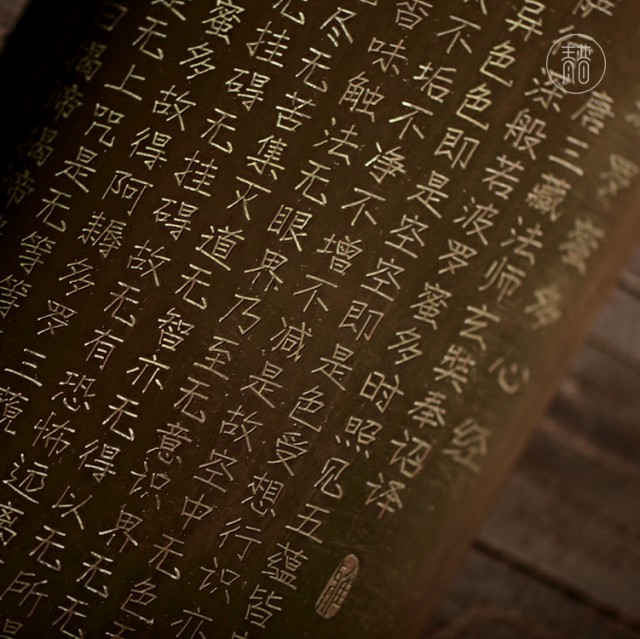 罗蜜多心经
唐三藏法师玄奘奉诏译
深般若波罗蜜多时照见五蕴皆
异色色即是空空即是色受想行识亦
不垢不净不增不减是故空中无色无
香味触法无眼界乃至无意识界无无
尽无苦集灭道无智亦无得以无所
无挂碍无挂碍故无有恐怖远离
蜜多故得阿耨多罗三藐
是无上咒是无等等
曰揭帝揭帝